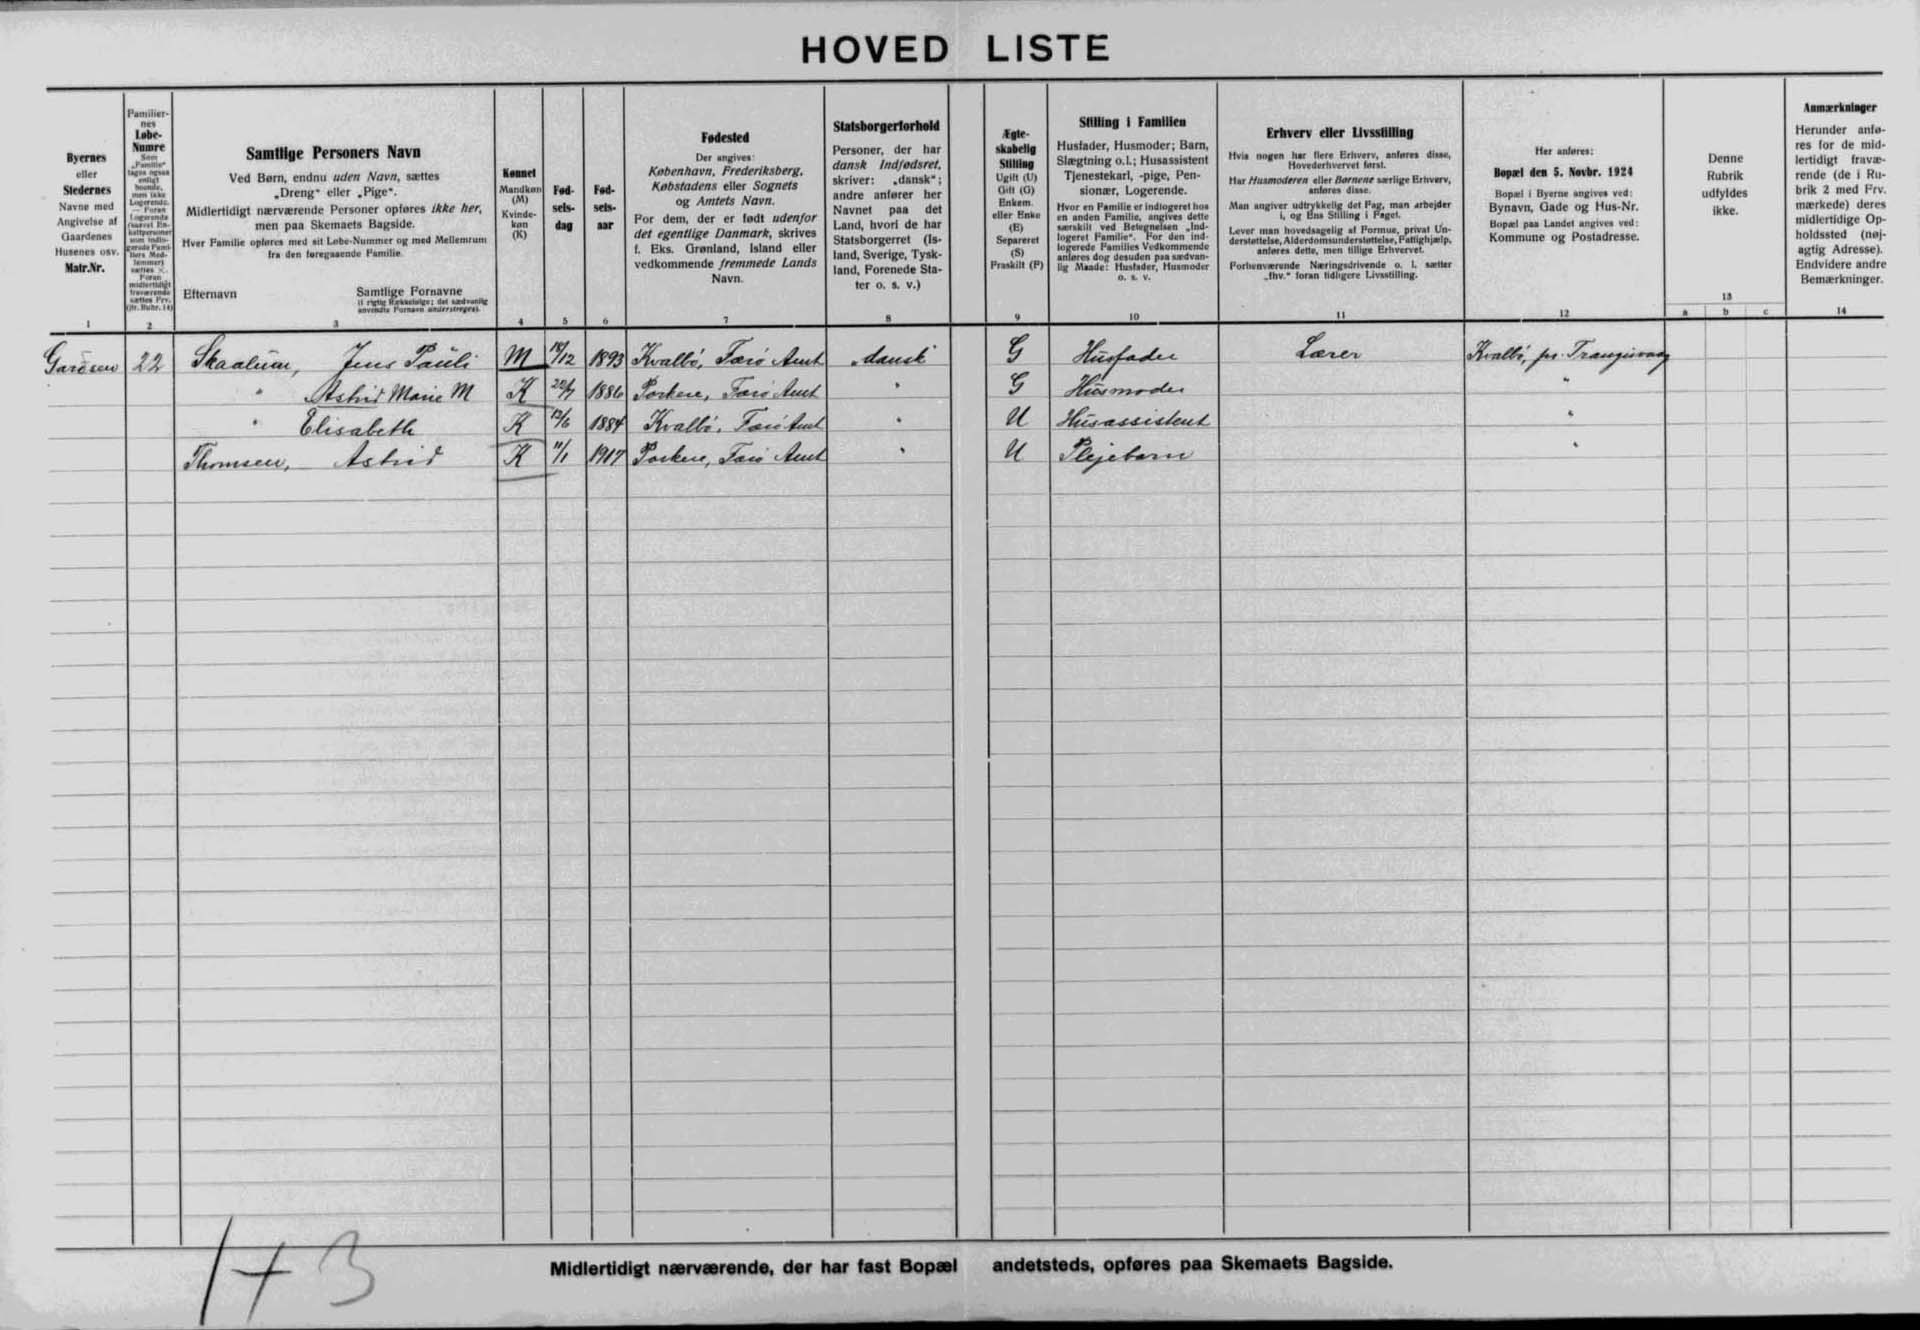 HOVED LISTE
Byernes
eller
Stedernes
Navne med
Angivelse af
Gaardenes
Husenes osv.
Matr.Nr.
1
Familier-
nes
Løbe-
Numre
Som
„Familie“
tages ogsaa
enligt
boende,
men ikke
Logerende.
— Foran
Logerende
2
Samtlige Personers Navn
Ved Børn, endnu uden Navn, sættes
„Dreng“ eller „Pige“.
Midlertidigt nærværende Personer opføres ikke her,
men paa Skemaets Bagside.
Hver Familie opføres med sit Løbe-Nummer og med Mellemrum
fra den foregaaende Familie.
Efternavn Samtlige Fornavne
(i rigtig Rækkefølge; det sædvanlig
anvendte Fornavn understreges).
3
Kønnet
Mandkøn
(M)
Kvinde-
køn
(K)
4
Fød-
sels-
dag
5
Fød-
sels-
aar
6
Fødested
Der angives:
København, Frederiksberg,
Købstadens eller Sognets
og Amtets Navn.
For dem, der er født udenfor
det egentlige Danmark, skrives
f. Eks. Grønland, Island eller
vedkommende fremmede Lands
Navn.
7
Statsborgerforhold
Personer, der har
dansk Indfødsret,
skriver: „dansk“;
andre anfører her
Navnet paa det
Land, hvori de har
Statsborgerret (Is-
land, Sverige, Tysk-
land, Forenede Sta-
ter o. s. v.)
8
Ægte-
skabelig
Stilling
Ugift (U)
Gift (G)
Enkem.
eller Enke
(E)
Separeret
(S)
Fraskilt (F)
9
Stilling i Familien
Husfader, Husmoder; Barn,
Slægtning o.l.; Husassistent
Tjenestekarl, -pige, Pen-
sionær, Logerende.
Hvor en Familie er indlogeret hos
en anden Familie, angives dette
særskilt ved Betegnelsen „Ind-
logeret Familie“. For den ind-
logerede Families Vedkommende
anføres dog desuden paa sædvan-
lig Maade: Husfader, Husmoder
o. s. v.
10
Erhverv eller Livsstilling
Hvis nogen har flere Erhverv, anføres disse,
Hovederhvervet først.
Har Husmoderen eller Børnene særlige Erhverv,
anføres disse.
Man angiver udtrykkelig det Fag, man arbejder
i, og Ens Stilling i Faget.
Lever man hovedsagelig af Formue, privat Un-
derstøttelse, Alderdomsunderstøttelse, Fattighjælp,
anføres dette, men tillige Erhvervet.
Forhenværende Næringsdrivende o. l. sætter
„fhv.“ foran tidligere Livsstilling.
11
Her anføres:
Bopæl den 5. Novbr. 1924
Bopæl i Byerne angives ved:
Bynavn, Gade og Hus-Nr.
Bopæl paa Landet angives ved:
Kommune og Postadresse.
12
Denne
Rubrik
udfyldes
ikke.
13
a b c
Anmærkninger
Herunder anfø-
res for de mid-
lertidigt fravæ-
rende (de i Ru-
brik 2 med Frv.
mærkede) deres
midlertidige Op-
holdssted (nøj-
agtig Adresse).
Endvidere andre
Bemærkninger.
14
22 Skaalum, Jens Pauli M 18/12 1893 Kvalbø, Færø Amt „dansk“ G Husfader Lærer Kvalbø, pr. Trangisvaag
" Astrid Marie M K 1886 Porkere, Færø Amt " G Husmoder "
" Elisabeth K 1884 Kvalbø, Færø Amt " U Husassistent "
Thomsen, Astrid K 11/1 1917 Porkere, Færø Amt " U Plejebarn "
1+3
Midlertidigt nærværende, der har fast Bopæl andetsteds, opføres paa Skemaets Bagside.